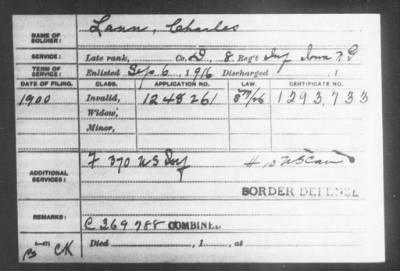 NAME OF SOLDIER: Lann, Charles
SERVICE: Late rank, Co. D, 8 Reg't Inf Iowa N.G
TERM OF SERVICE: Enlisted Sep. 6, 1916 Discharged , 1
DATE OF FILING. CLASS. APPLICATION NO. LAW. CERTIFICATE NO.
1900 Invalid, 1248261 1293,733
Widow,
Minor,
ADDITIONAL SERVICES: F 370 US Inf H 10 US Cav
BORDER DEFENSE
REMARKS: C 269 788 COMBINED
CK Died , 1 , at